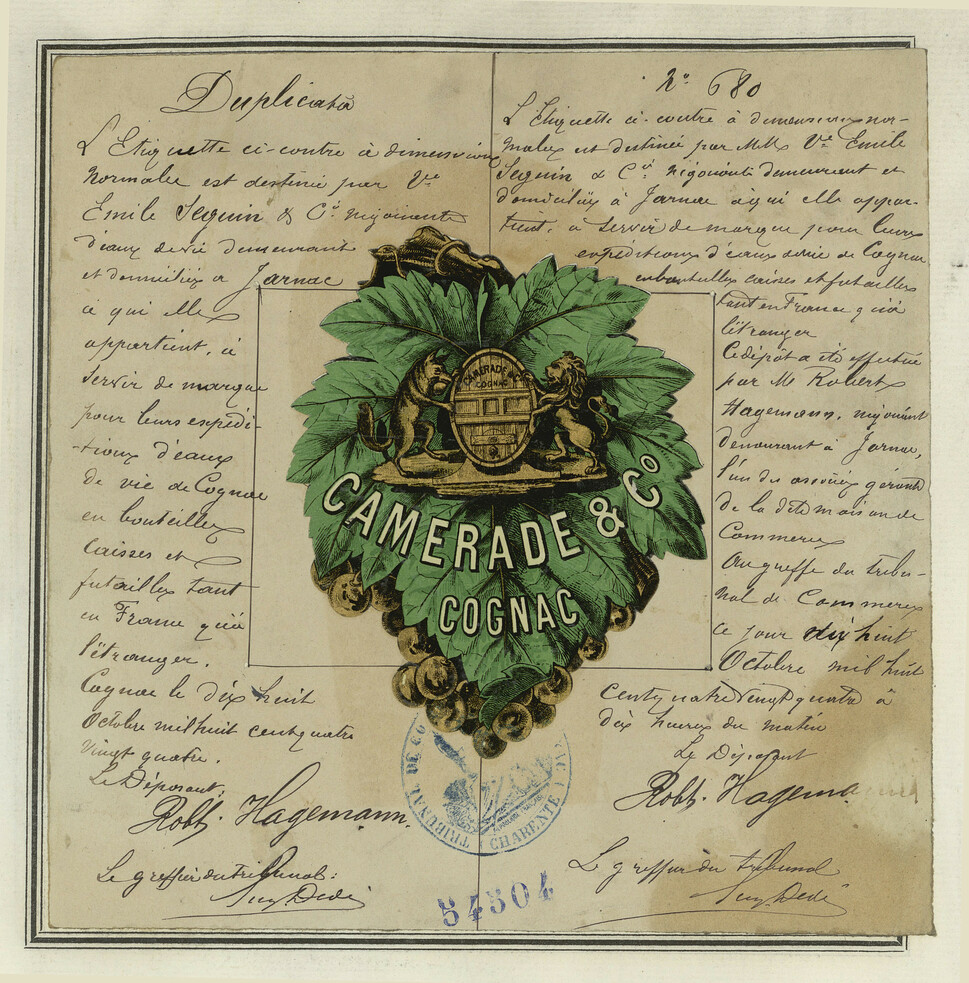 Duplicata
L'Etiquette ci-contre à dimension
Normale est destinée par Vve
Emile Seguin & Cie négociants
d'eaux de vie demeurant
et domiciliés a Jarnac
à qui elle
appartient, à
servir de marque
pour leurs expédi-
-tions d'eaux
de vie de Cognac
en bouteilles
caisses et
futailles tant
en France qu'à
l'étranger.
Cognac le dix huit
Octobre mil huit cent quatre
vingt quatre.
Le Déposant,
Robt. Hagemann.
Le greffier du tribunal:
No 680
L'Etiquette ci-contre à dimensions nor-
males est destinée par MM Vve Emile
Seguin & Cie négociants demeurant et
domiciliés à Jarnac à qui elle appar-
tient, à servir de marque pour leurs
expéditions d'eaux de vie de Cognac
en bouteilles caisses et futailles
tant en France qu'à
l'étranger
Ce dépôt a été effectué
par Mr Robert
Hagemann, négociant
demeurant à Jarnac,
l'un des associés gérants
de la dite maison de
Commerce
Au greffe du tribu-
nal de Commerce
ce jour dix huit
Octobre mil huit
cent quatre vingt quatre à
dix heures du matin
Le Déposant
Robt. Hagema
Le greffier du tribunal
CAMERADE & Co
COGNAC
CAMERADE & Co
COGNAC
TRIBUNAL DE CO
CHARENTE
54504